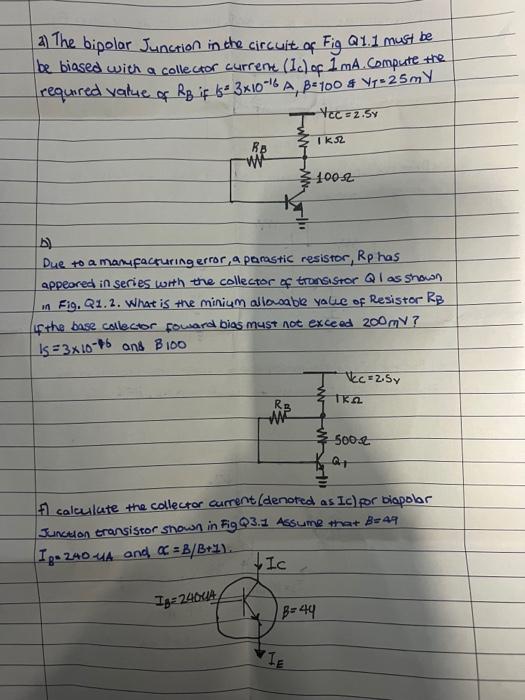 a) The bipolar Junction in the circuit of Fig Q1.1 must be
be biased with a collector current (Ic) of 1 mA. Compute the
required value of RB if Is= 3x10-16 A, β=100 & VT=25mV
Vcc = 2.5v
1KΩ
RB
100Ω
b)
Due to a manufacturing error, a parastic resistor, Rp has
appeared in series with the collector of transistor Q1 as shown
in Fig. Q1.2. What is the minium allowable value of Resistor RB
if the base collector foward bias must not exceed 200mV?
Is=3x10-16 and B100
Vcc=2.5v
1KΩ
RB
500Ω
Q1
f) calculate the collector current (denoted as Ic) for biapolar
Junction transistor shown in Fig Q3.1 Assume that B=49
IB=240 uA and α = B/B+1).
IC
IB=240uA
β=49
IE